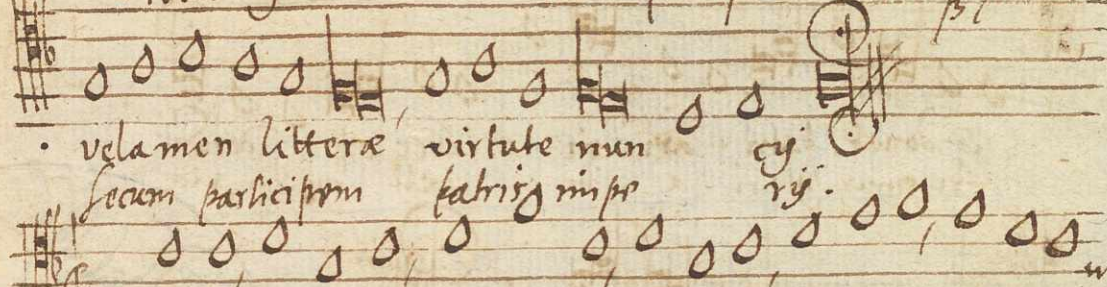 velamen litteræ virtute nun cij
secum participem patris impe rij.